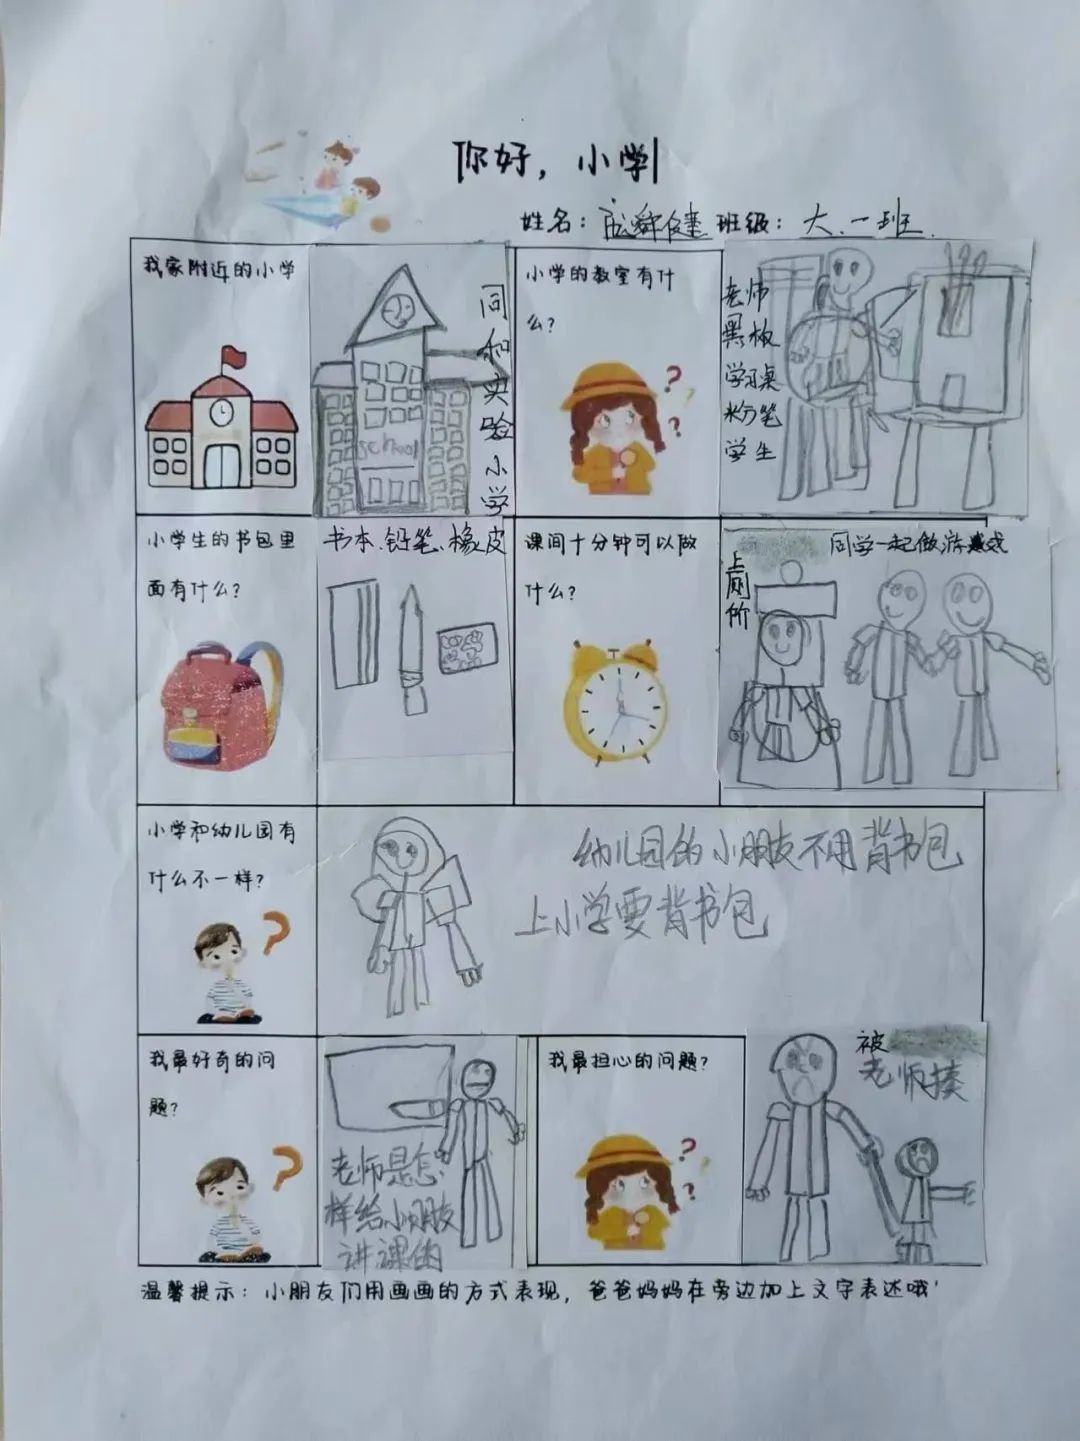 你好，小学
姓名： 班级：大一班
我家附近的小学
同和实验小学
school
小学的教室有什
么？
老师
黑板
学习桌
粉笔
学生
小学生的书包里
面有什么？
书本、铅笔、橡皮
课间十分钟可以做
什么？
上厕所
同学一起做游戏
小学和幼儿园有
什么不一样？
幼儿园的小朋友不用背书包
上小学要背书包
我最好奇的问
题？
老师是怎
样给小朋友
讲课的
我最担心的问题？
被
老师揍
温馨提示：小朋友们用画画的方式表现，爸爸妈妈在旁边加上文字表述哦